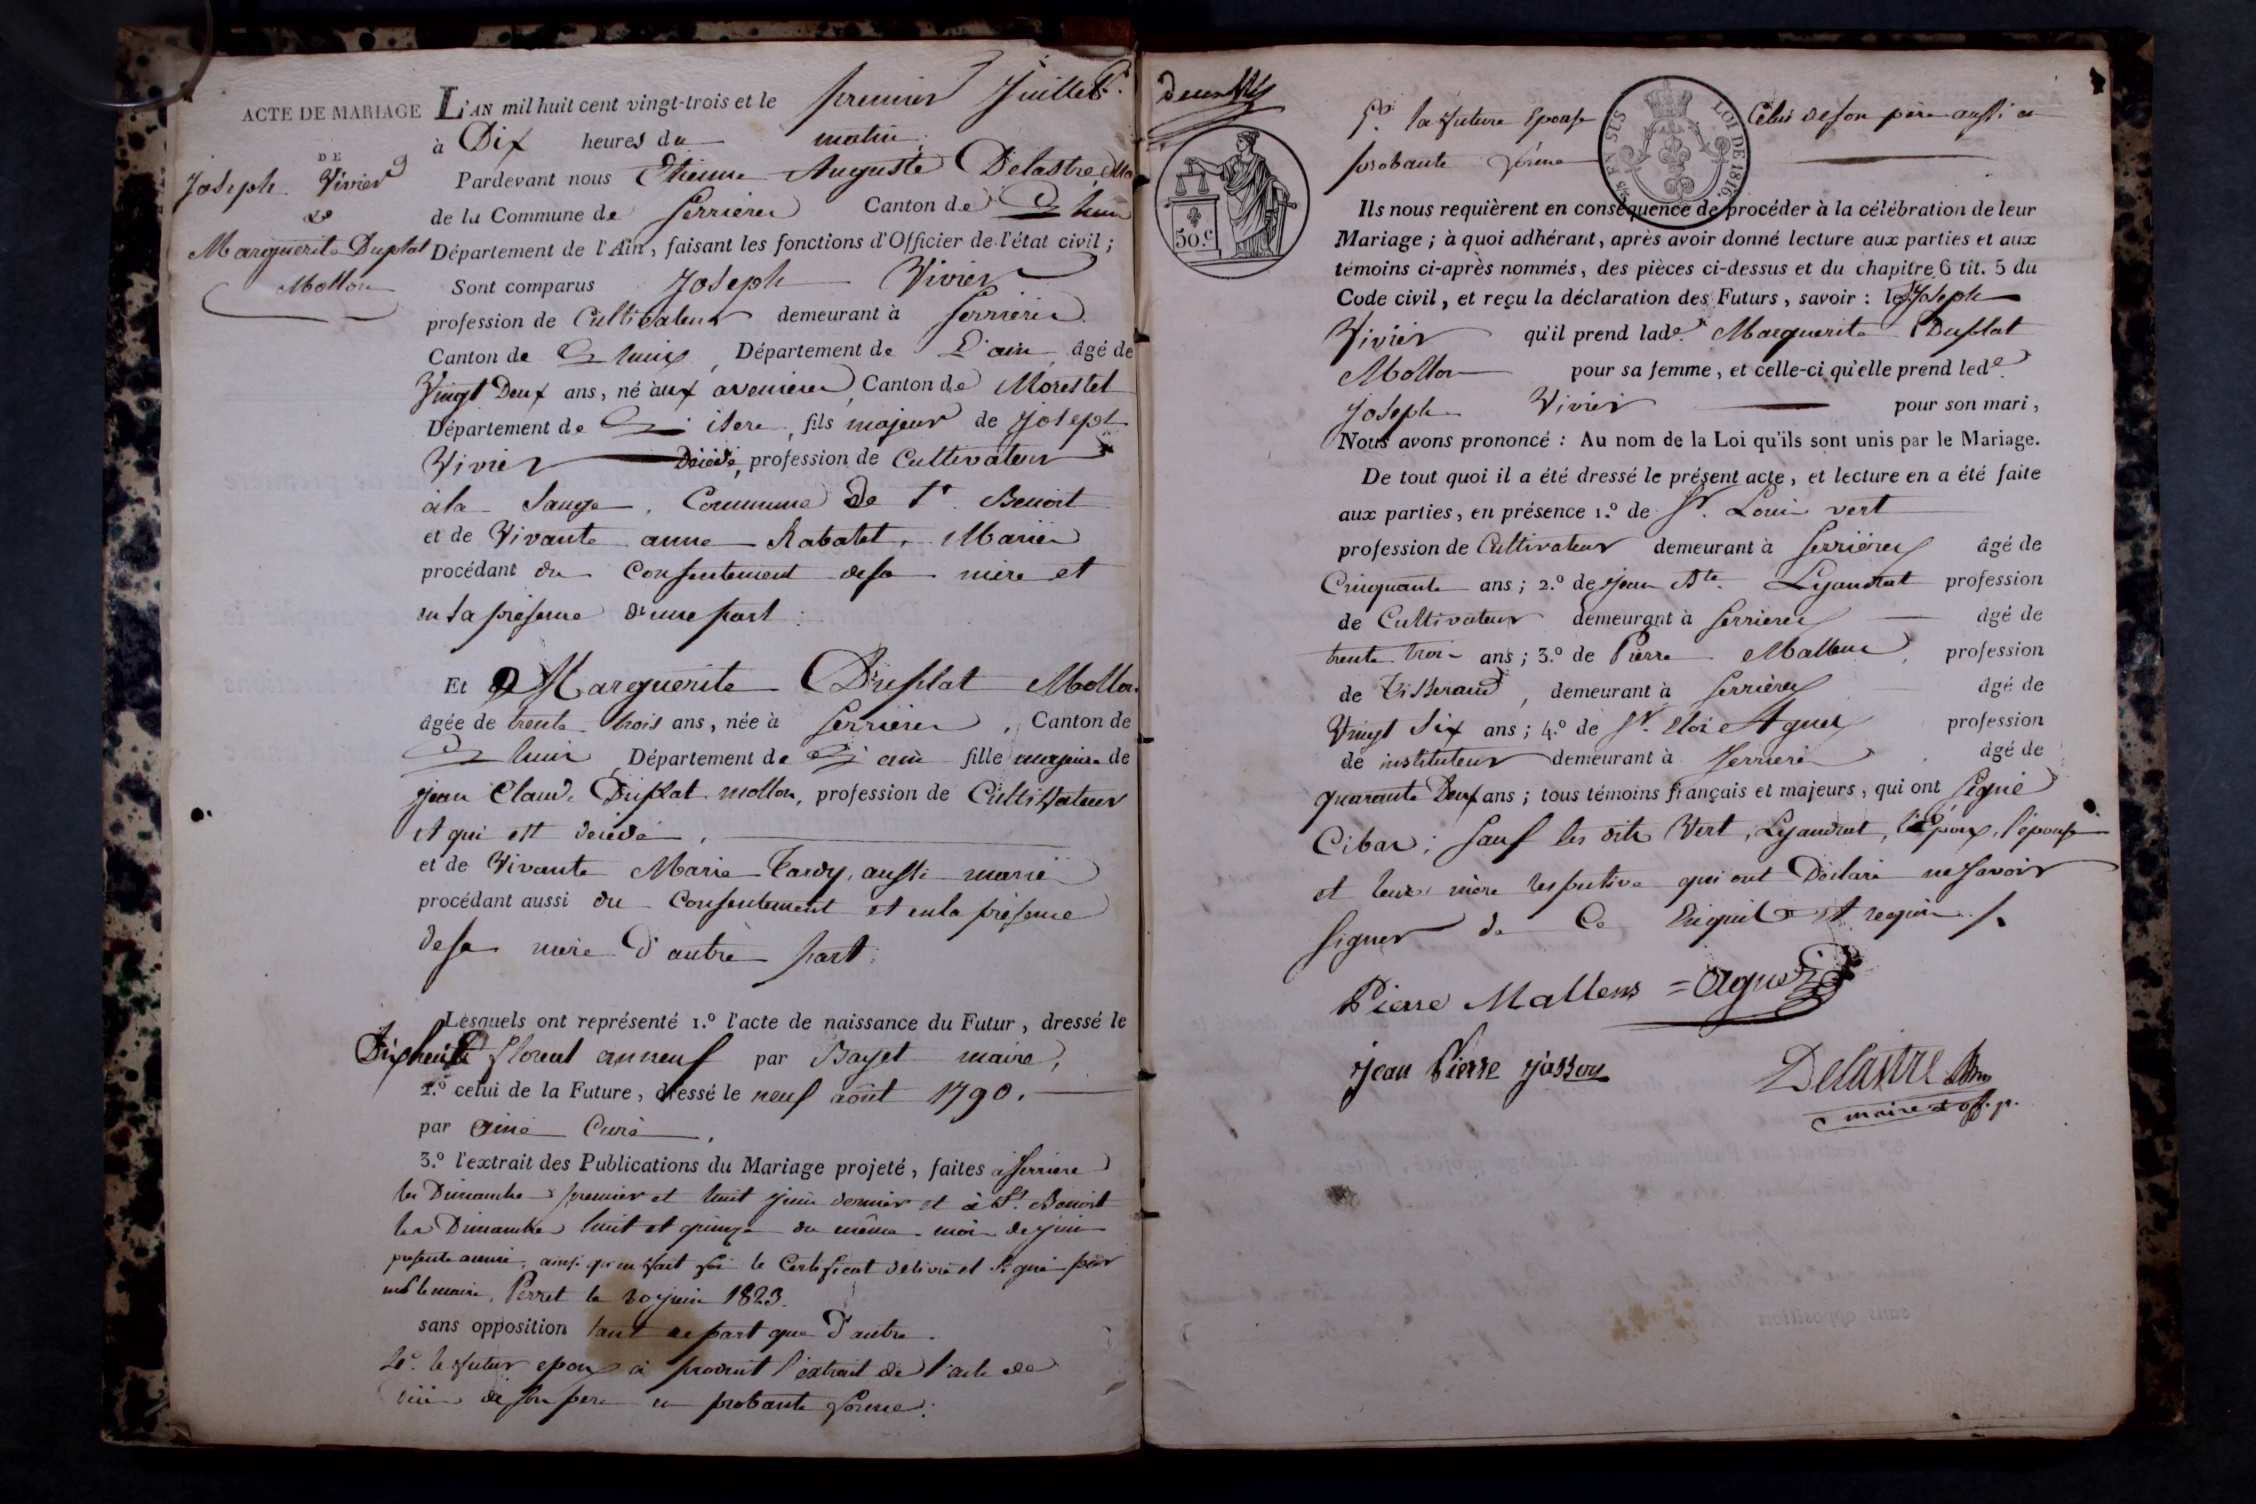 ACTE DE MARIAGE
DE
Joseph Vivier
&
Marguerite Duplat
Mollon
L'AN mil huit cent vingt-trois et le premier Juillet
à Dix heures du matin
Pardevant nous Etienne Auguste Delastre
de la Commune de Serrieres Canton de
Département de l'Ain, faisant les fonctions d'Officier de l'état civil;
Sont comparus Joseph Vivier
profession de Cultivateur demeurant à Serrieres
Canton de Lhuis, Département de L'ain, âgé de
Vingt Deux ans, né aux avenieres, Canton de Morestel
Département de isere, fils majeur de Joseph
Vivier Décédé, profession de Cultivateur
à la Sauge, Commune De St. Benoit
et de Vivante anne Rabatet, Mariée
procédant du Consentement de sa mere et
en sa présence d'une part:
Et Marguerite Duplat Mollon
âgée de trente trois ans, née à Serrieres, Canton de
Lhuis Département de ain fille majeure de
jean Claude Duplat mollon, profession de Cultivateur
et qui est décédé,
et de Vivante Marie Tardy, aussi mariée
procédant aussi du Consentement et en la présence
de sa mere D'autre part:
Lesquels ont représenté 1.º l'acte de naissance du Futur, dressé le
Dix huit floreal an neuf par Bayet maire,
2.º celui de la Future, dressé le neuf août 1790.
par Curé,
3.º l'extrait des Publications du Mariage projeté, faites à Serriere
les Dimanche premier et huit juin dernier et à St. Benoit
les Dimanche huit et quinze du même mois de juin
présente année, ainsi qu'en fait foi le Certificat délivré et signé par
mr le maire, Perret le 30 juin 1823.
sans opposition tant de part que D'autre.
4º. le futur epoux à produit l'extrait de l'acte de
de son pere en probante forme:
5º. la future Epouse Celui de son père aussi en
probante forme
EN SUS
LOI DE 1816.
50.c
Ils nous requièrent en conséquence de procéder à la célébration de leur
Mariage; à quoi adhérant, après avoir donné lecture aux parties et aux
témoins ci-après nommés, des pièces ci-dessus et du chapitre 6 tit. 5 du
Code civil, et reçu la déclaration des Futurs, savoir: led Joseph
Vivier qu'il prend lade. Marguerite Duplat
Mollon pour sa femme, et celle-ci qu'elle prend led
Joseph Vivier pour son mari,
Nous avons prononcé: Au nom de la Loi qu'ils sont unis par le Mariage.
De tout quoi il a été dressé le présent acte, et lecture en a été faite
aux parties, en présence 1.º de Sr. Louis vert
profession de Cultivateur demeurant à Serrieres âgé de
Cinquante ans; 2.º de jean Bte. Lyaudrat profession
de Cultivateur demeurant à Serrieres âgé de
trente trois ans; 3.º de Pierre Mallens, profession
de Tisserand, demeurant à Serrieres âgé de
Vingt Six ans; 4.º de Sr. Eloi Aguer profession
de instituteur demeurant à Serriere âgé de
quarante Deux ans; tous témoins français et majeurs, qui ont Signé
Ci bas; Sauf les dits Vert, Lyaudrat, l'Epoux, l'epouse
et leurs mère respective qui ont Déclaré ne savoir
signer de Ce Enquis et requis
Pierre Mallens = Aguer
jean Pierre
Delastre
maire